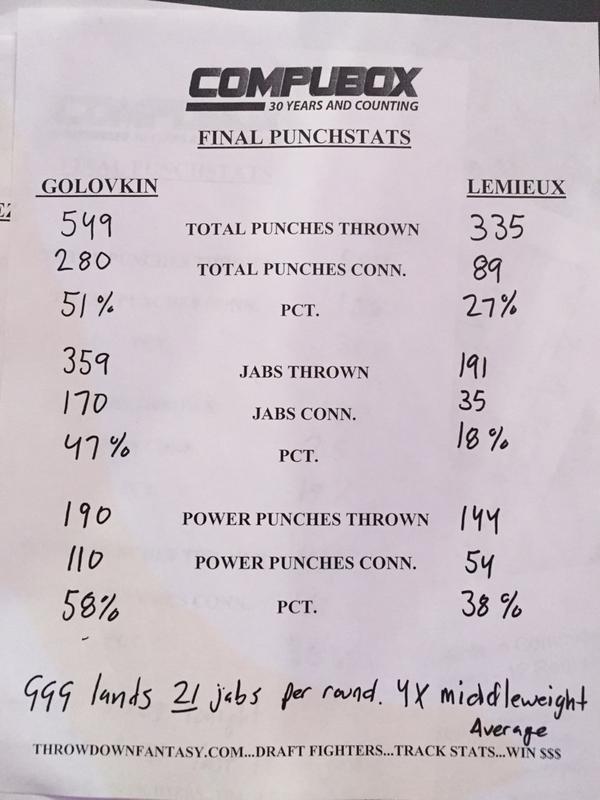 COMPUBOX
30 YEARS AND COUNTING
FINAL PUNCHSTATS
GOLOVKIN LEMIEUX
549 TOTAL PUNCHES THROWN 335
280 TOTAL PUNCHES CONN. 89
51% PCT. 27%
359 JABS THROWN 191
170 JABS CONN. 35
47% PCT. 18%
190 POWER PUNCHES THROWN 144
110 POWER PUNCHES CONN. 54
58% PCT. 38%
GGG lands 21 jabs per round. 4X middleweight
Average
THROWDOWNFANTASY.COM...DRAFT FIGHTERS...TRACK STATS...WIN $$$